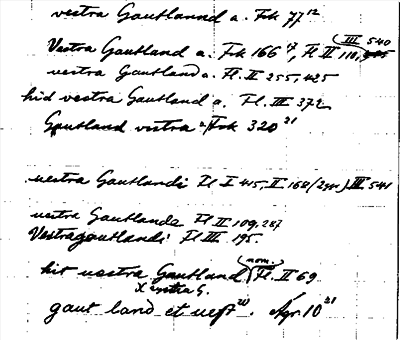 vestra Gautlannd a. Fsk 77¹²
Vestra Gautland a. Fsk 166¹⁷, Fl II 110, III 540
vestra Gautland a. Fl. II 255, 425
hid vestra Gautland a. Fl. III 372
Gautland vestra a Fsk 320²¹
vestra Gautlandi Fl I 415, II. 168 (2gg) III 541
vestra Gautlande Fl II 109, 287
Vestragautlandi Fl III. 195.
hit vestra Gautland (nom.) Fl. II 69
gaut land et 10²¹